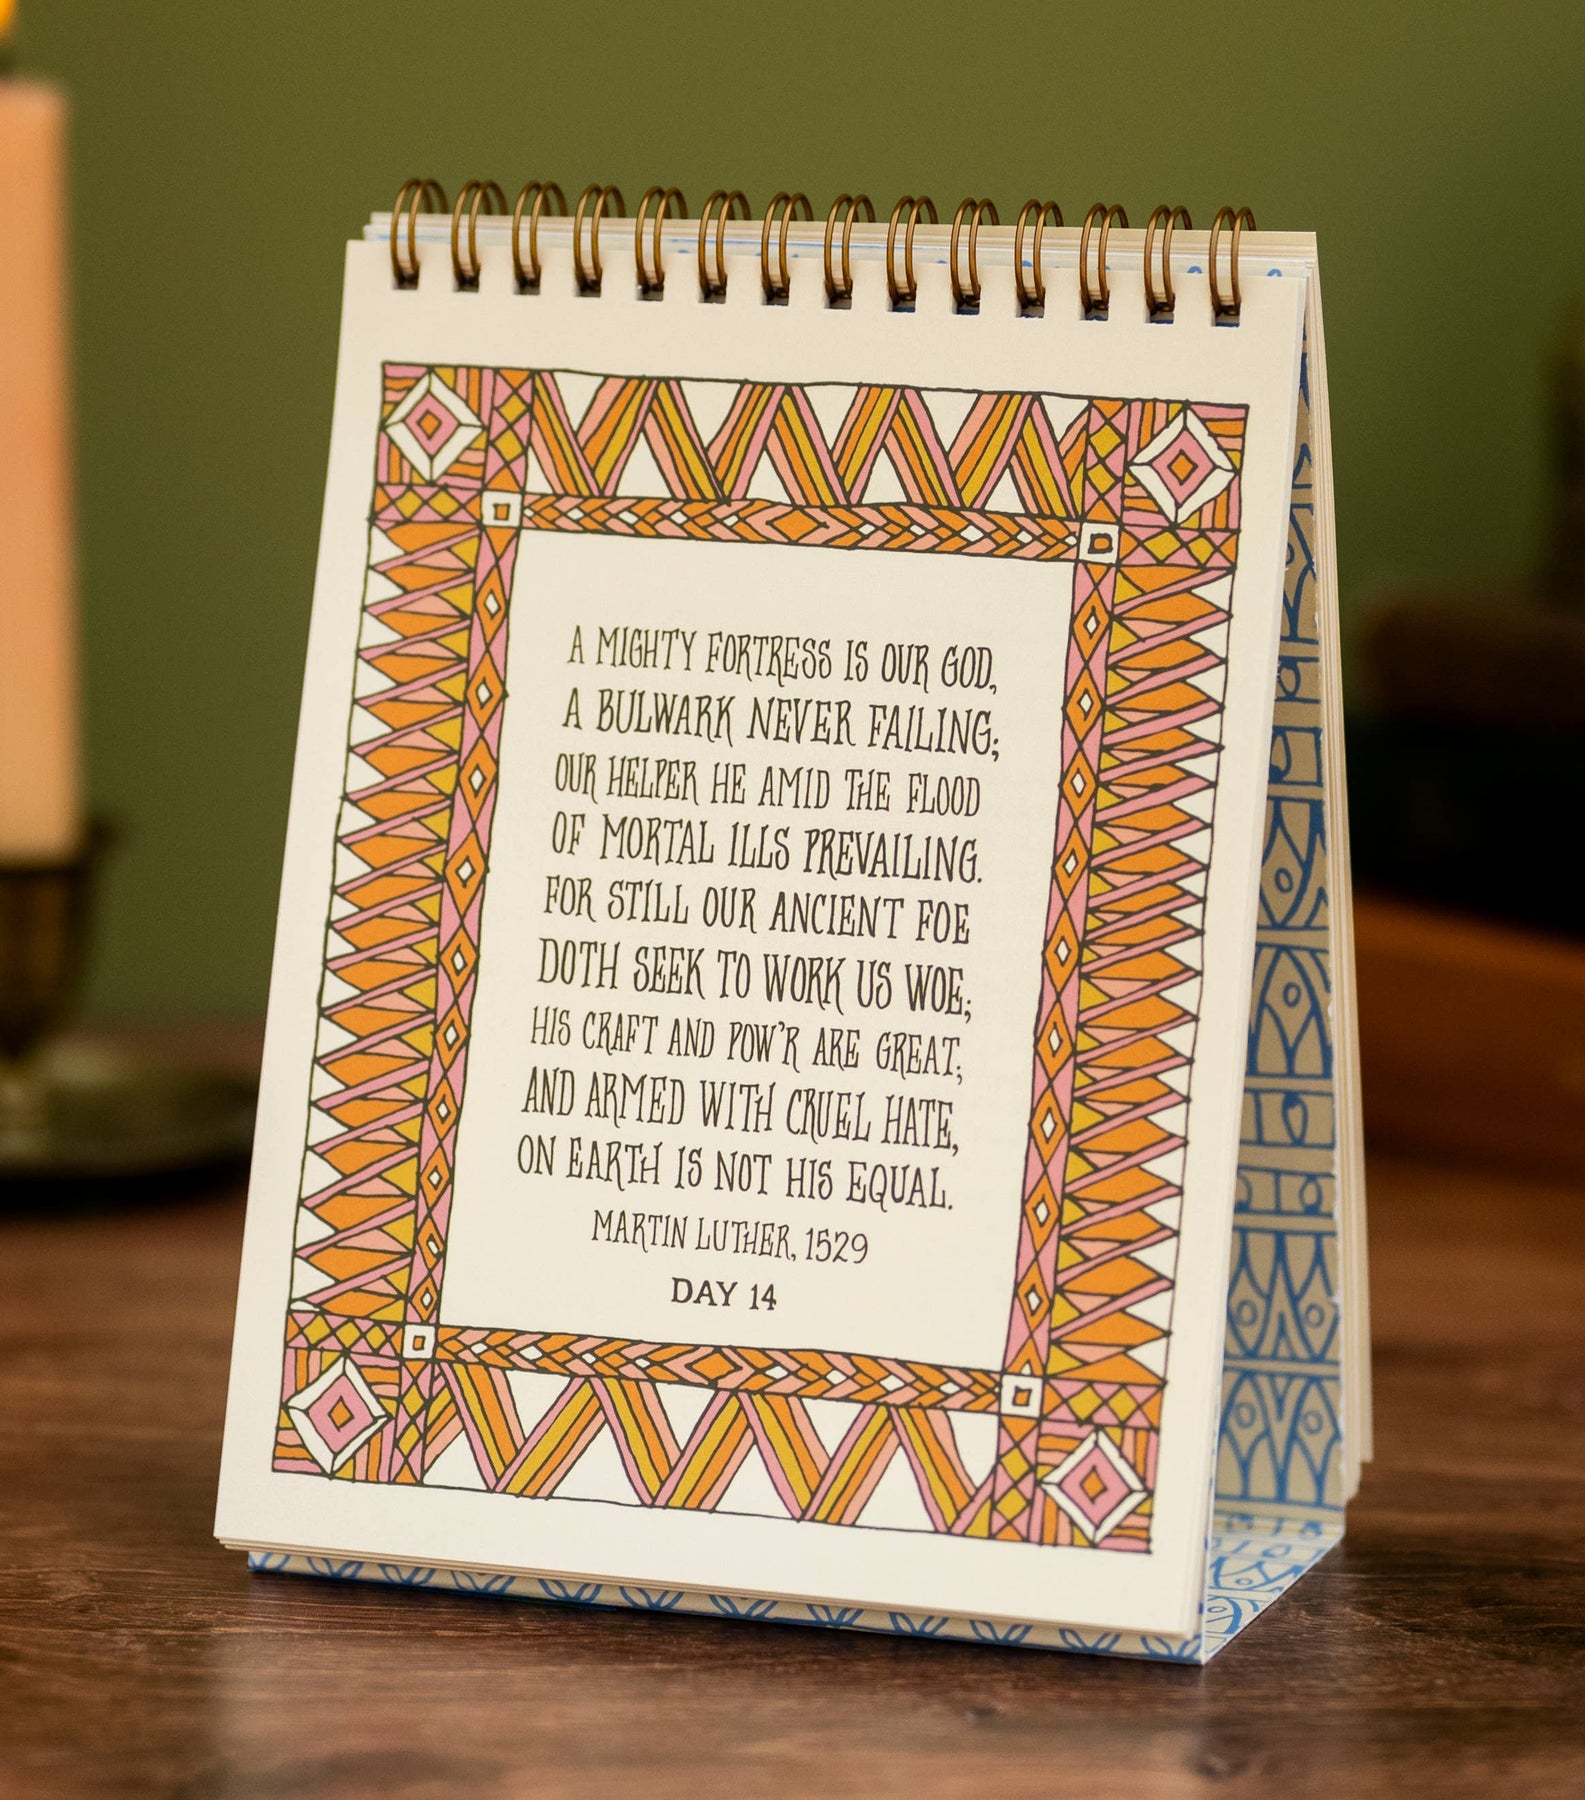 A MIGHTY FORTRESS IS OUR GOD,
A BULWARK NEVER FAILING;
OUR HELPER HE AMID THE FLOOD
OF MORTAL ILLS PREVAILING.
FOR STILL OUR ANCIENT FOE
DOTH SEEK TO WORK US WOE;
HIS CRAFT AND POW'R ARE GREAT;
AND ARMED WITH CRUEL HATE,
ON EARTH IS NOT HIS EQUAL.
MARTIN LUTHER, 1529
DAY 14